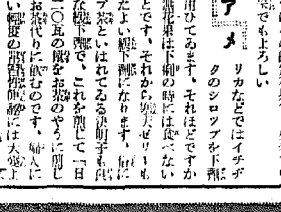 でもよろしい
アメ
リカなどではイチヂ
クのシロップを下劑
に用ひてゐます。それほどですか
無花果は下痢の時には食べない
ことです。それから寒天ゼリーも
たよい緩下劑になります。
ブ茶といはれてゐる決明子も
な緩下劑で、これを煎じて一日
二〇瓦の量をお茶のやうに煎じ
お茶代りに飲むのです。婦人に
い輕度の常習便秘には大變よ